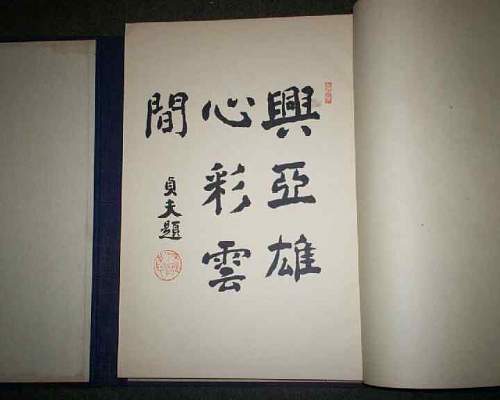 興亞雄
心彩雲
間
貞夫題